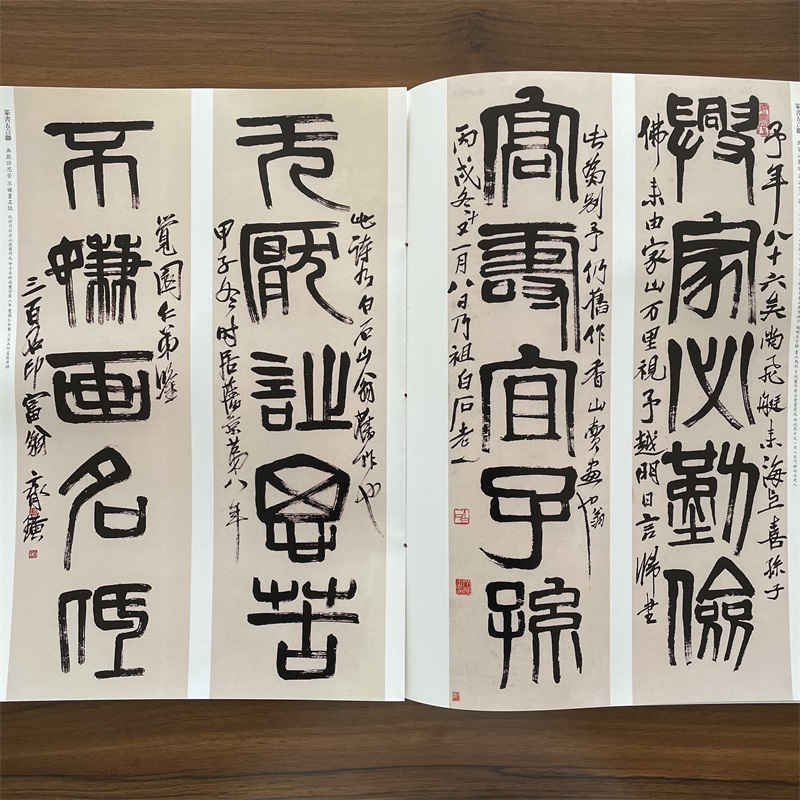 興家必勤儉
予年八十六矣尚飛艇來海上喜孫子
佛來由家山万里視予越明日言歸書
高壽宜子孫
此爲別予仍舊作香山賣画也翁
丙戌冬十一月八日乃祖白石老人
无厭詩思苦
此詩乃白石山翁舊作也
甲子冬時居舊京第八年
不嫌画名低
覺園仁弟鑒
三百石印富翁 齊璜
篆書五言聯 無厭詩思苦 不嫌畫名低